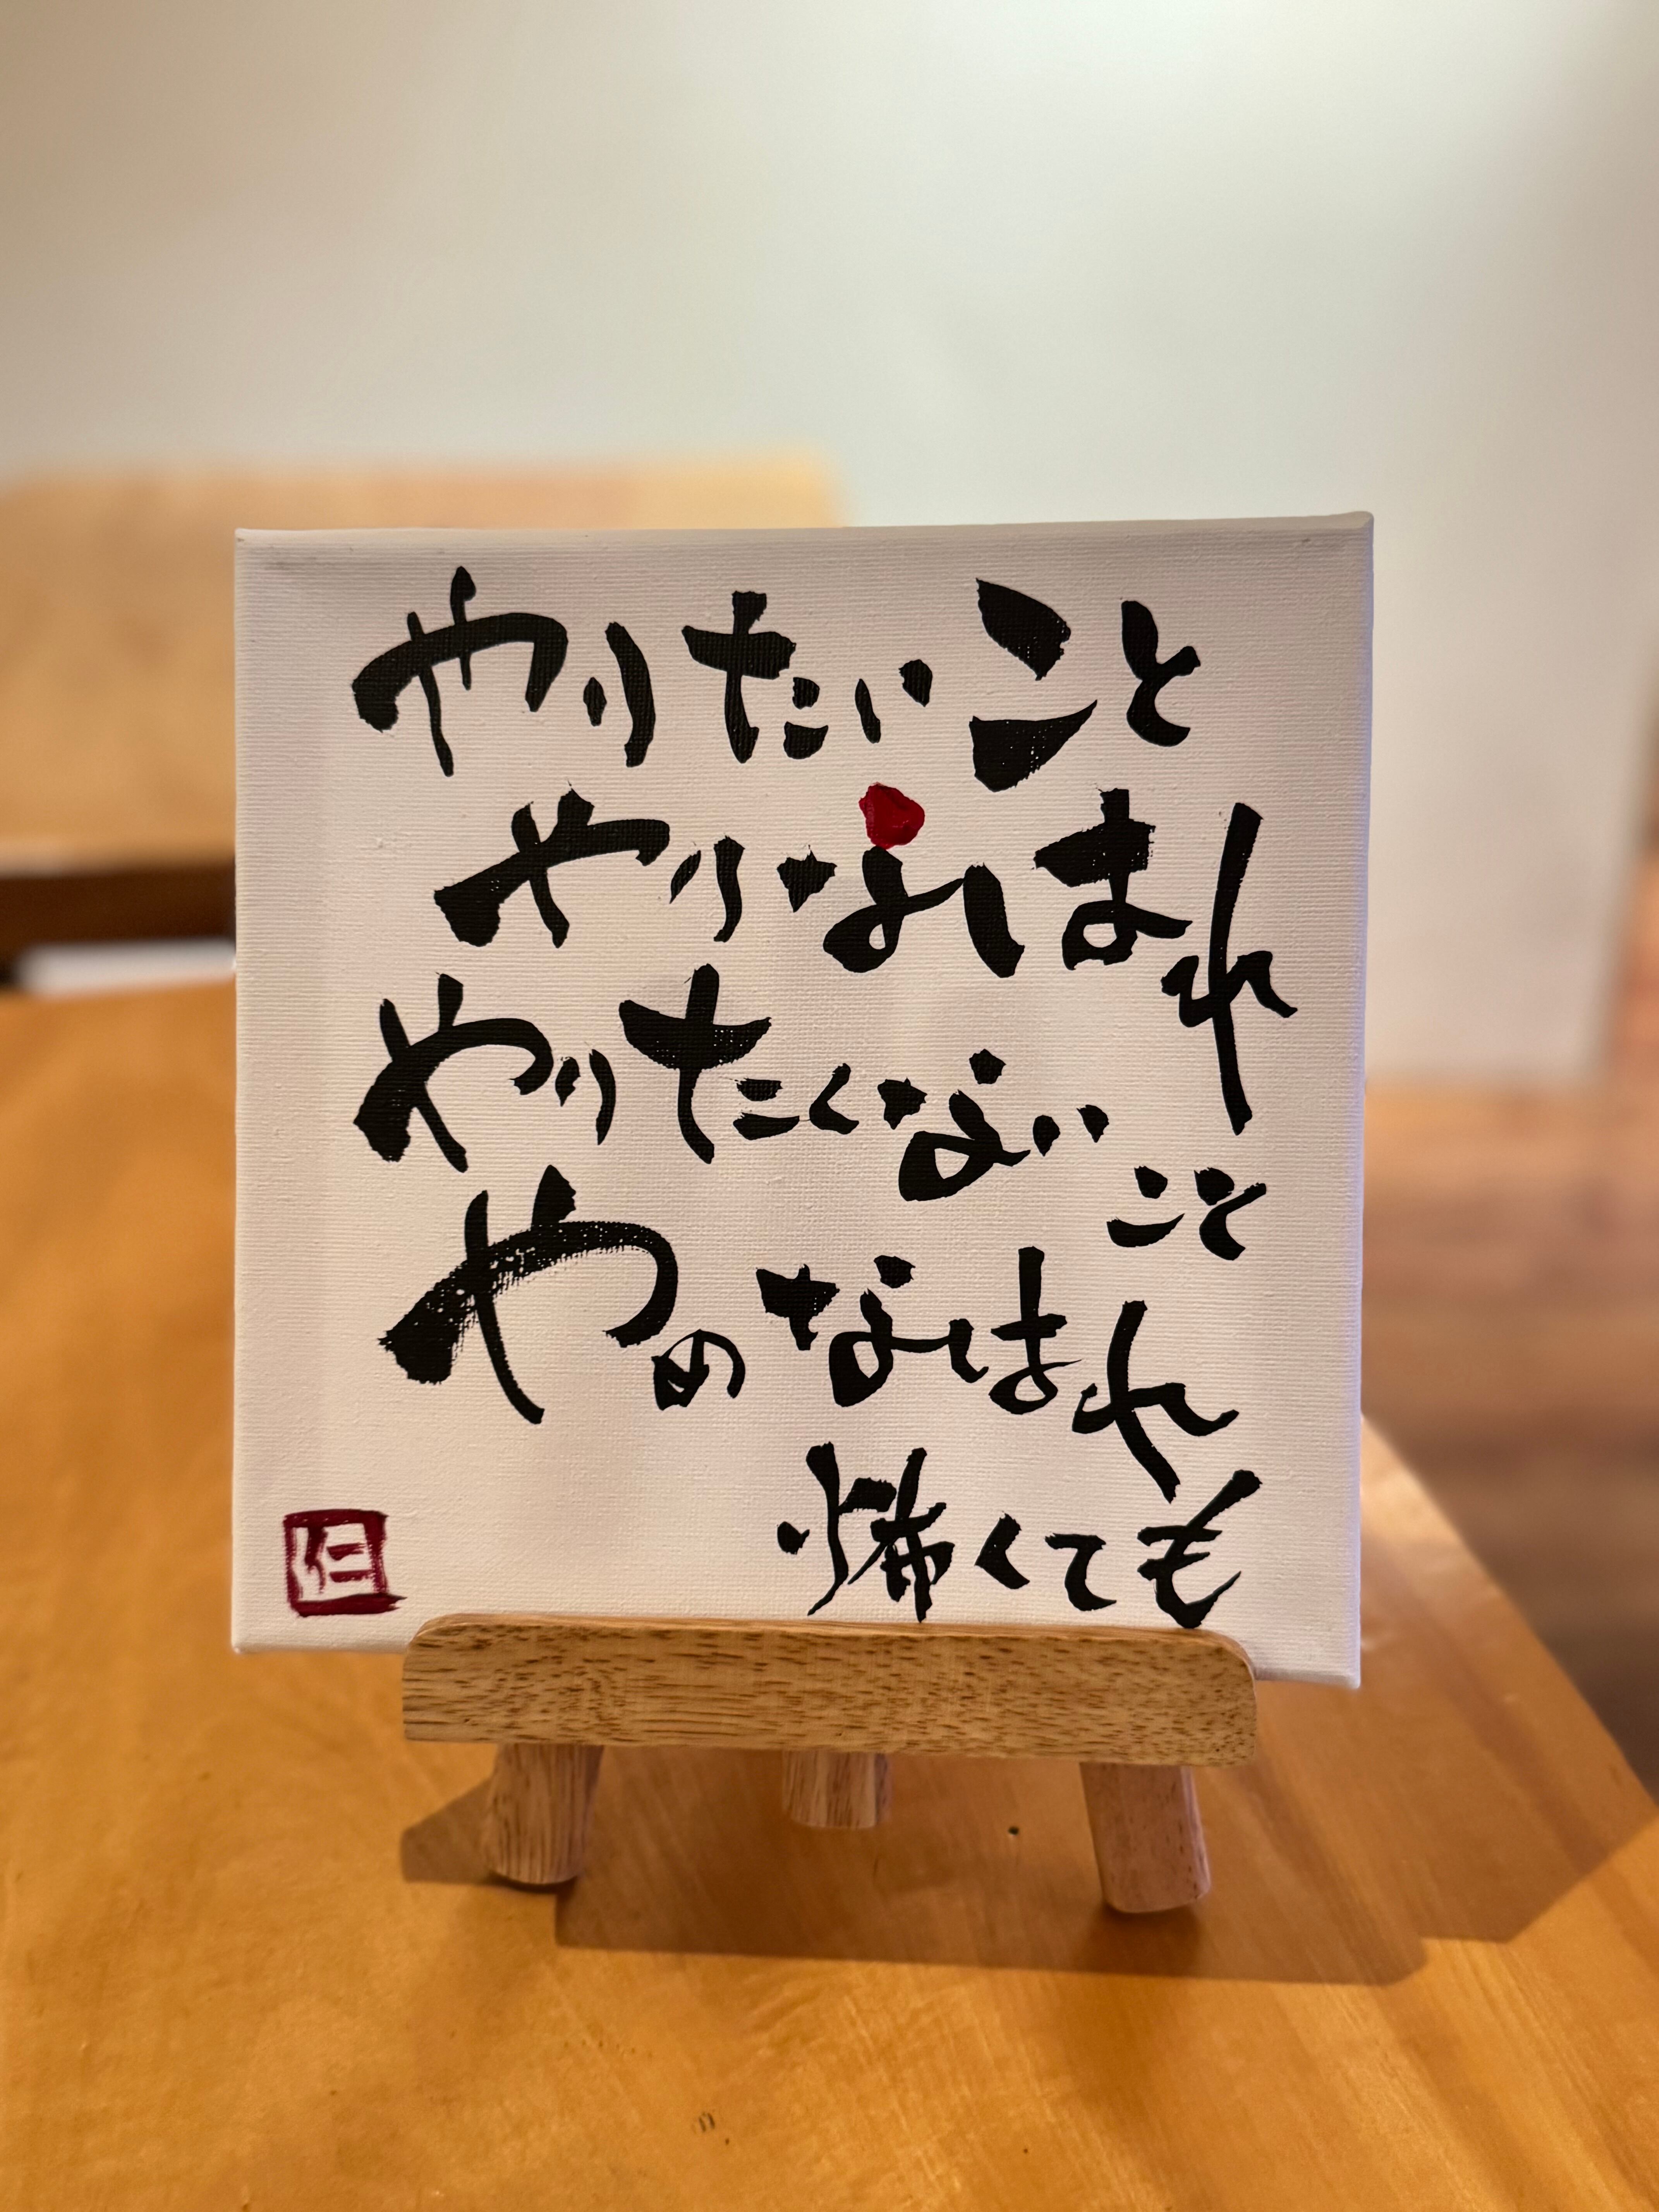 やりたいこと
やりなはれ
やりたくないこと
やめなはれ
怖くても
仁